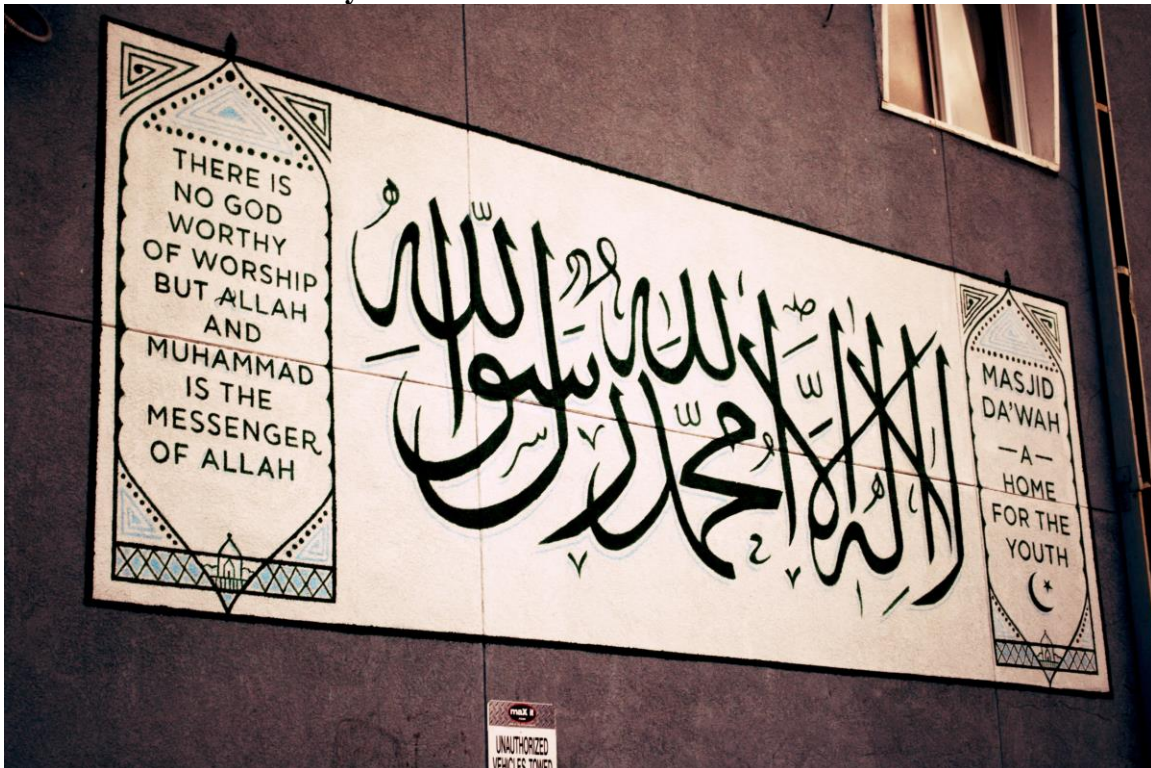 THERE IS
NO GOD
WORTHY
OF WORSHIP
BUT ALLAH
AND
MUHAMMAD
IS THE
MESSENGER
OF ALLAH
لا إله إلا الله محمد رسول الله
MASJID
DA'WAH
—A—
HOME
FOR THE
YOUTH
maX it
UNAUTHORIZED
VEHICLES TOWED